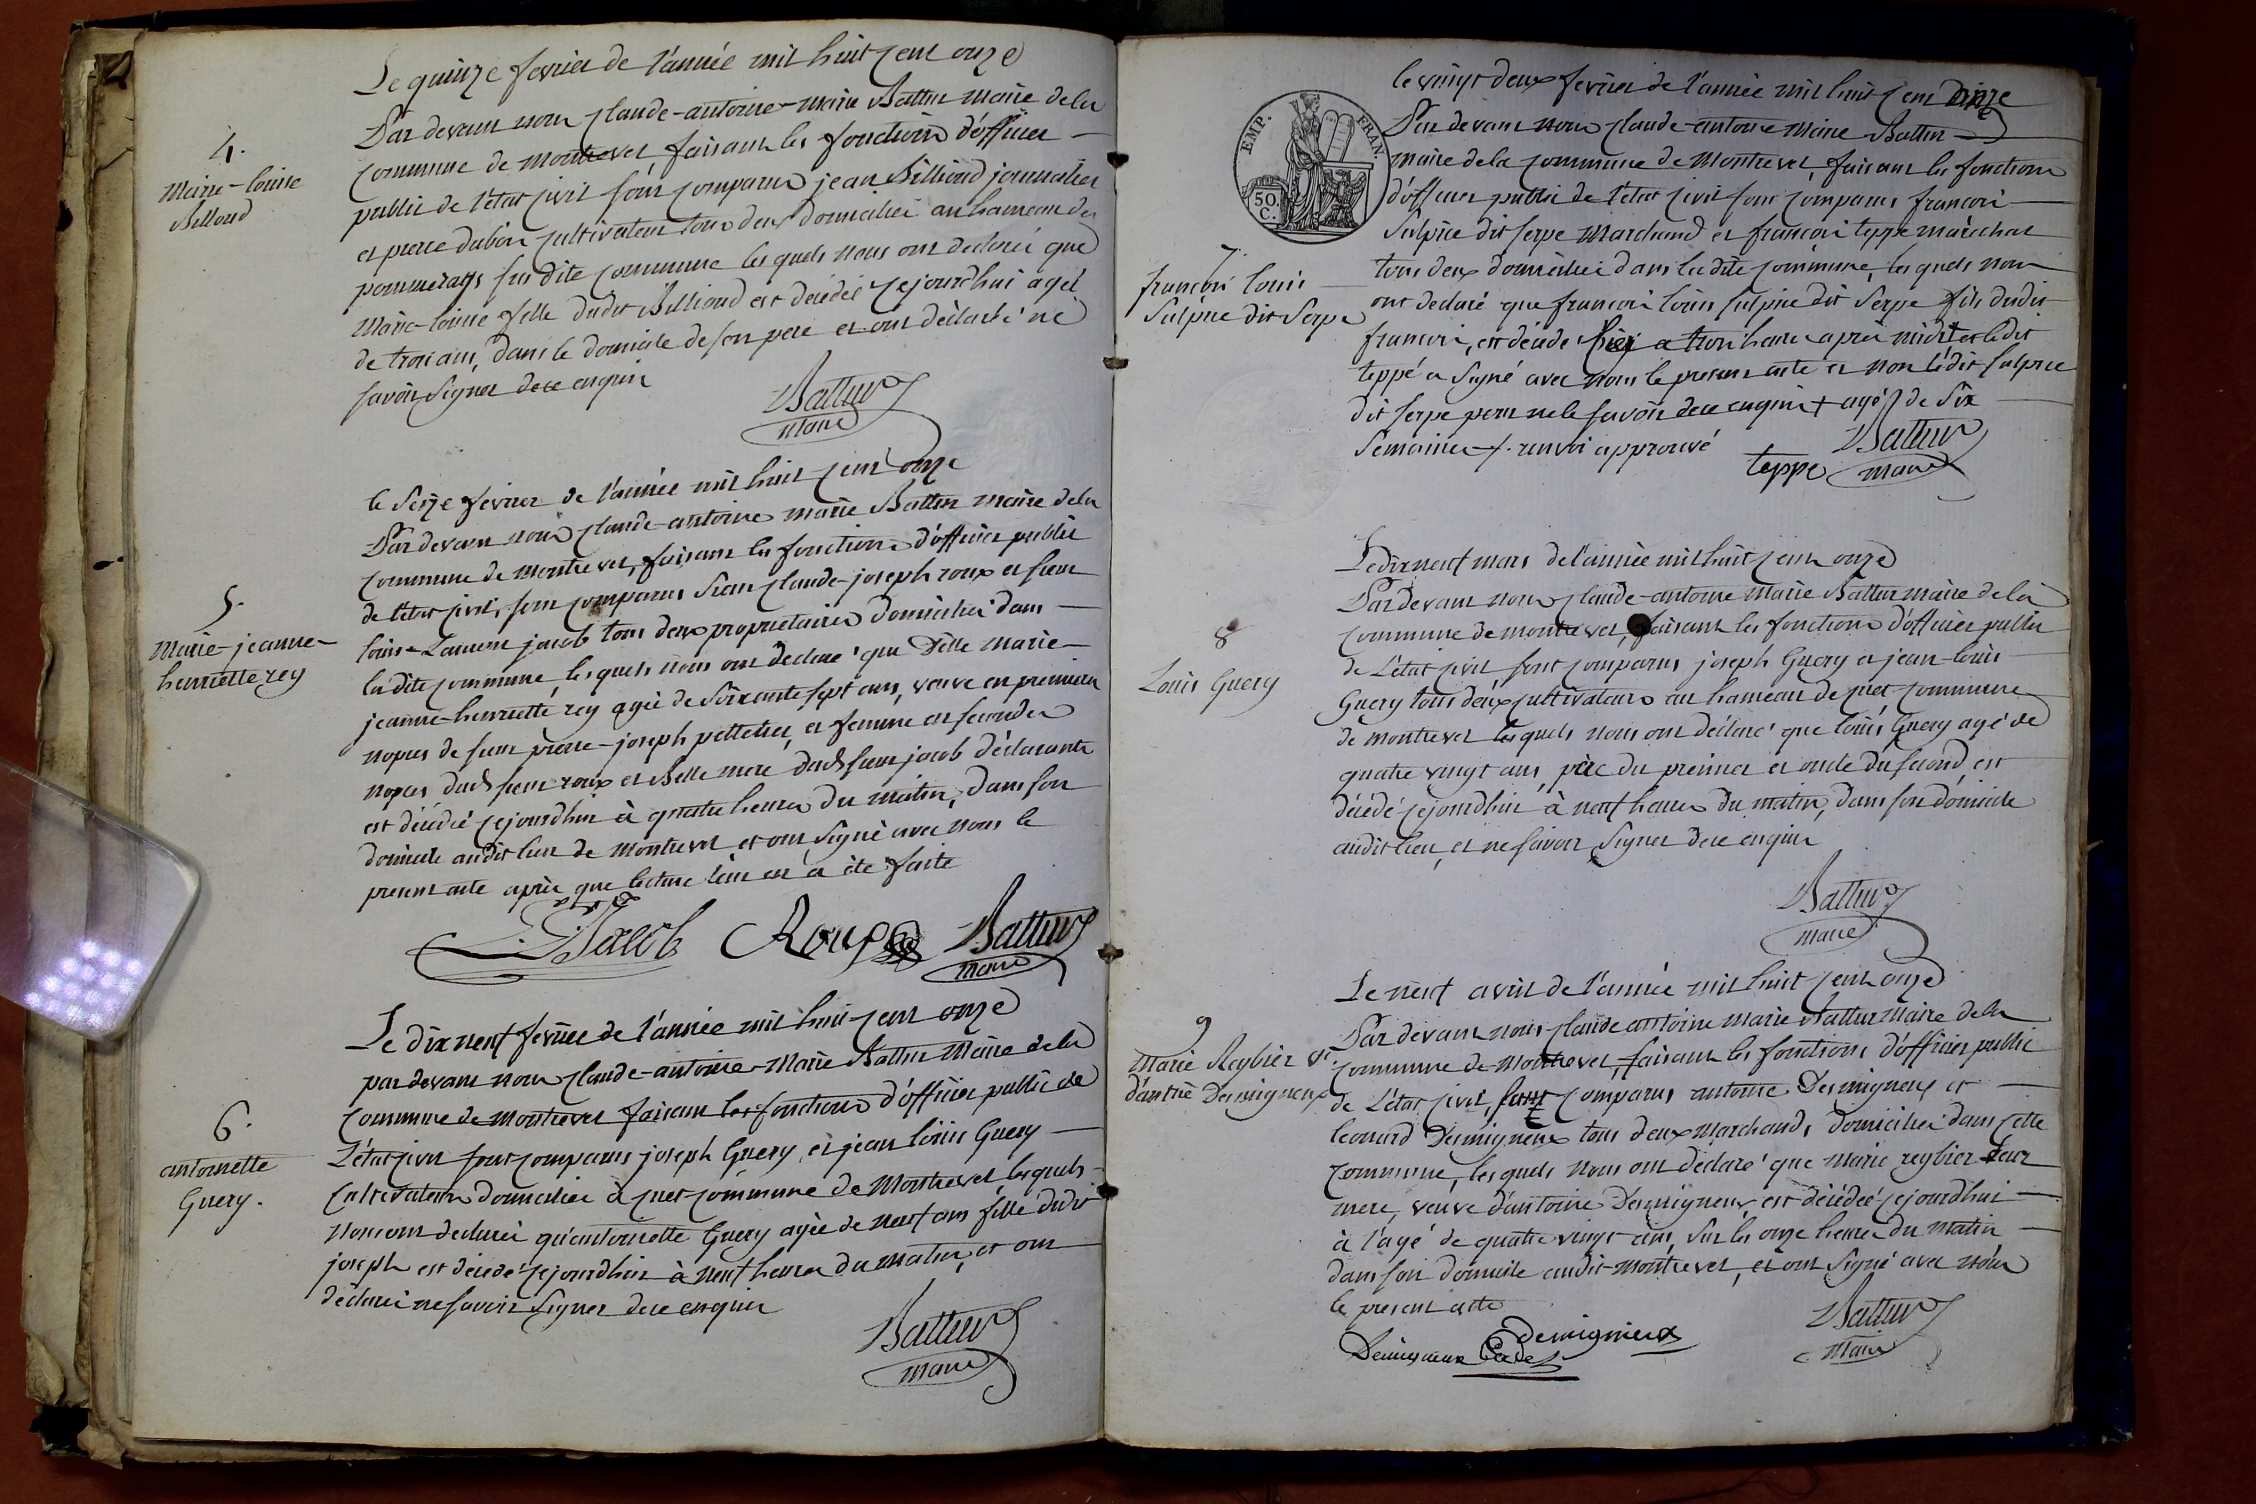 Le quinze fevrier de l'année mil huit cent onze
Par devant nous Claude-antoine-marie Battur maire de la
commune de montrevel faisant les fonctions d'officier
public de l'état civil sont comparus jean Billioud journalier
et pierre dubois cultivateur tous deux domiciliés au hameau de
susdite commune les quels nous ont declaré que
Marie-louise fille dudit Billioud est décédée cejourd'hui agée
de trois ans, dans le domicile de son pere et ont déclaré ne
savoir signer de ce enquis
4.
Marie-louise
Billoud
Battur
maire
le seize fevrier de l'année mil huit cent onze
Par devant nous Claude-antoine marie Battur maire de la
commune de montrevel, faisant les fonctions d'officier public
de l'état civil, sont comparus sieur Claude-joseph roux et sieur
louis-Laurent jacob tous deux proprietaires domiciliés dans
la dite commune, les quels nous ont declaré que Delle marie-
jeanne-henriette rey agée de soixante sept ans, veuve en premieres
nopces de sieur pierre-joseph pelletier, et femme en secondes
nopces dud. sieur roux et belle mere dud. sieur jacob déclarants
est décédée cejourd'hui à quatre heures du matin, dans son
domicile audit lieu de montrevel et ont signé avec nous le
present acte après que lecture leur en a été faite
5.
Marie-jeanne-
henriette rey
Jacob Roux Battur
maire
Le dix neuf fevrier de l'année mil huit cent onze
par devant nous Claude-antoine-Marie Battur Maire de la
commune de montrevel faisant les fonctions d'officier public de
L'état civil sont comparus joseph Guery, et jean louis Guery
cultivateurs domiciliés à cuet commune de Montrevel lesquels
nous ont declaré qu'antoinette Guery agée de neuf ans fille dudit
joseph est décédé cejourd'hui à neuf heures du matin, et ont
déclaré ne savoir signer de ce enquis
6.
antoinette
Guery.
Battur
maire
le vingt deux fevrier de l'année mil huit cent onze
Par devant nous Claude-antoine Marie Battur
maire de la commune de Montrevel, faisant les fonctions
d'officier public de l'état civil sont comparus francois
Sulpice dit serpe Marchand et francois teppe maréchal
tous deux domiciliés dans la dite commune, les quels nous
ont declaré que francois louis sulpice dit Serpe fils dudit
francois, est décédé hier a trois heures après midi + et ledit
teppe a signé avec nous le present acte et non ledit sulpice
dit serpe pour ne le savoir de ce enquis + agé de six
semaines +. renvoi approuvé
EMP. FRAN.
50.
C.
7.
francois louis
Sulpice dit Serpe
teppe Battur
maire
Le dix neuf mars de l'année mil huit cent onze
Par devant nous Claude-antoine Marie Battur maire de la
commune de montrevel, faisant les fonctions d'officier public
de L'état civil, sont comparus joseph Guery et jean-louis
Guery tous deux cultivateurs au hameau de cuet commune
de montrevel les quels nous ont déclaré que louis Guery agé de
quatre vingt ans, père du premier et oncle du second, est
décédé cejourd'hui à neuf heures du matin, dans son domicile
audit lieu, et ne savoir signer de ce enquis
8
Louis Guery
Battur
maire
Le neuf avril de l'année mil huit cent onze
Par devant nous Claude antoine Marie Battur Maire de la
commune de Montrevel, faisant les fonctions d'officier public
de L'état civil, sont comparus antoine Desmigneux et
leonard Desmigneux tous deux Marchands domiciliés dans cette
commune, les quels nous ont déclaré que marie reybier leur
mere, veuve d'antoine Desmigneux est décédée cejourd'hui
à l'agé de quatre vingt ans, sur les onze heures du matin
dans son domicile audit montrevel, et ont signé avec nous
le present acte
9
Marie Reybier ve.
d'antne Desmigneux
Battur
Maire
demignieux